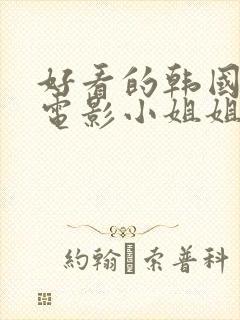 好看的韩國
電影小姐姐
約翰·索普科